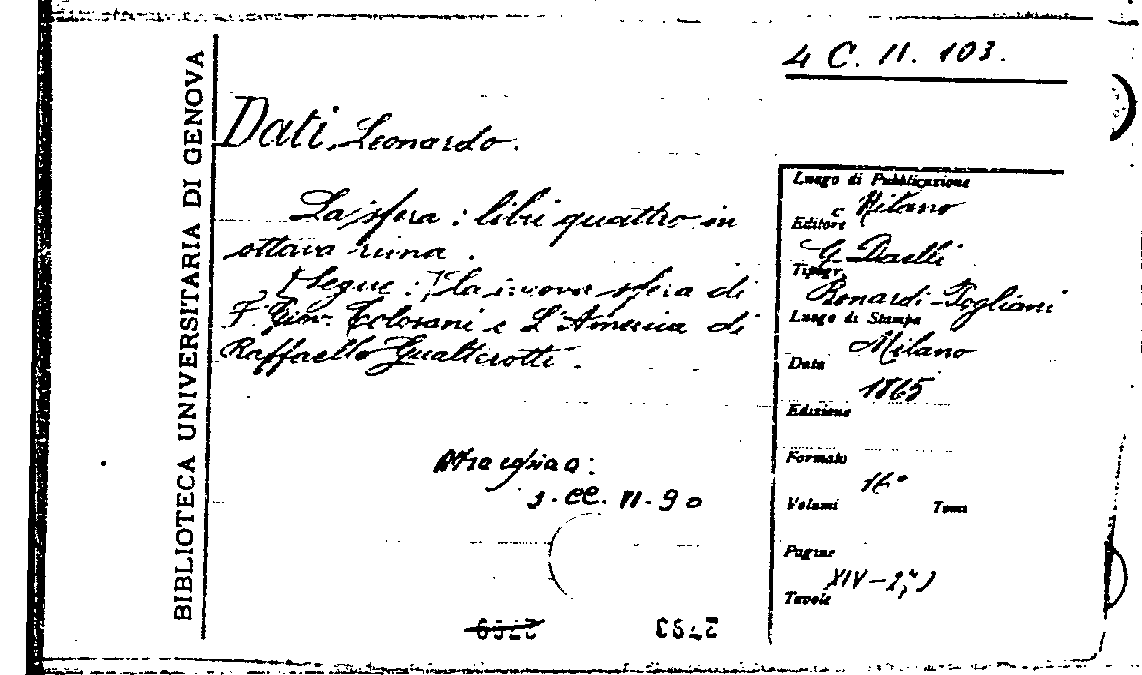 BIBLIOTECA UNIVERSITARIA DI GENOVA
4 C. II. 103.
Dati, Leonardo.
La sfera : libri quattro in
ottava rima.
[Segue:] La nuova sfera di
F. Giov. Tolosani e L'America di
Raffaello Gualterotti.
Altra copia a:
3. CC. VI. 90
Luogo di Pubblicazione
Milano
Editore
G. Daelli
Tipogr.
Bonardi-Pogliani
Luogo di Stampa
Milano
Data
1865
Edizione
Formato
16°
Volumi Tomi
Pagine
XIV -
Tavole